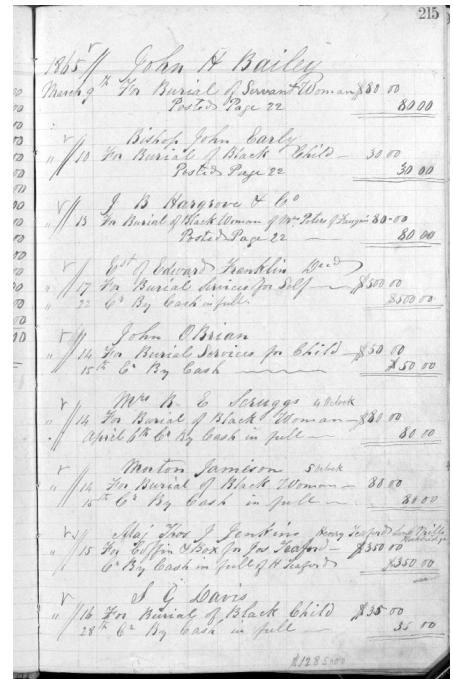 215
1865 John H Bailey
March 9th For Burial of Servant Woman $80 00
Posted Page 22 80 00
Bishop John Early
" 10 For Burial of Black Child 30 00
Posted Page 22 30 00
J B Hargrove & Co
" 13 For Burial of Black Woman of Wm Peters of 80-00
Posted Page 22 80 00
Est of Edward Franklin Decd
" 17 For Burial Services for Self $500 00
" 22 Cr By Cash in full $500 00
John O'Brian
" 14 For Burial Services for Child $50 00
15th Cr By Cash $50 00
Mrs R E Scruggs 4 Oclock
" 14 For Burial of Black Woman $80 00
" April 6th Cr By Cash in full 80 00
Morton Jamieson 5 Oclock
" 14 For Burial of Black Woman 80 00
15th Cr By Cash in full 80 00
Maj Thos J Jenkins Henry Teaford
" 15 For Coffin & Box for Jos Teaford $350 00
Cr By Cash in full of H Teaford $350 00
S G Davis
" 16 For Burial of Black Child $35 00
28th Cr By Cash in full 35 00
$1285.00